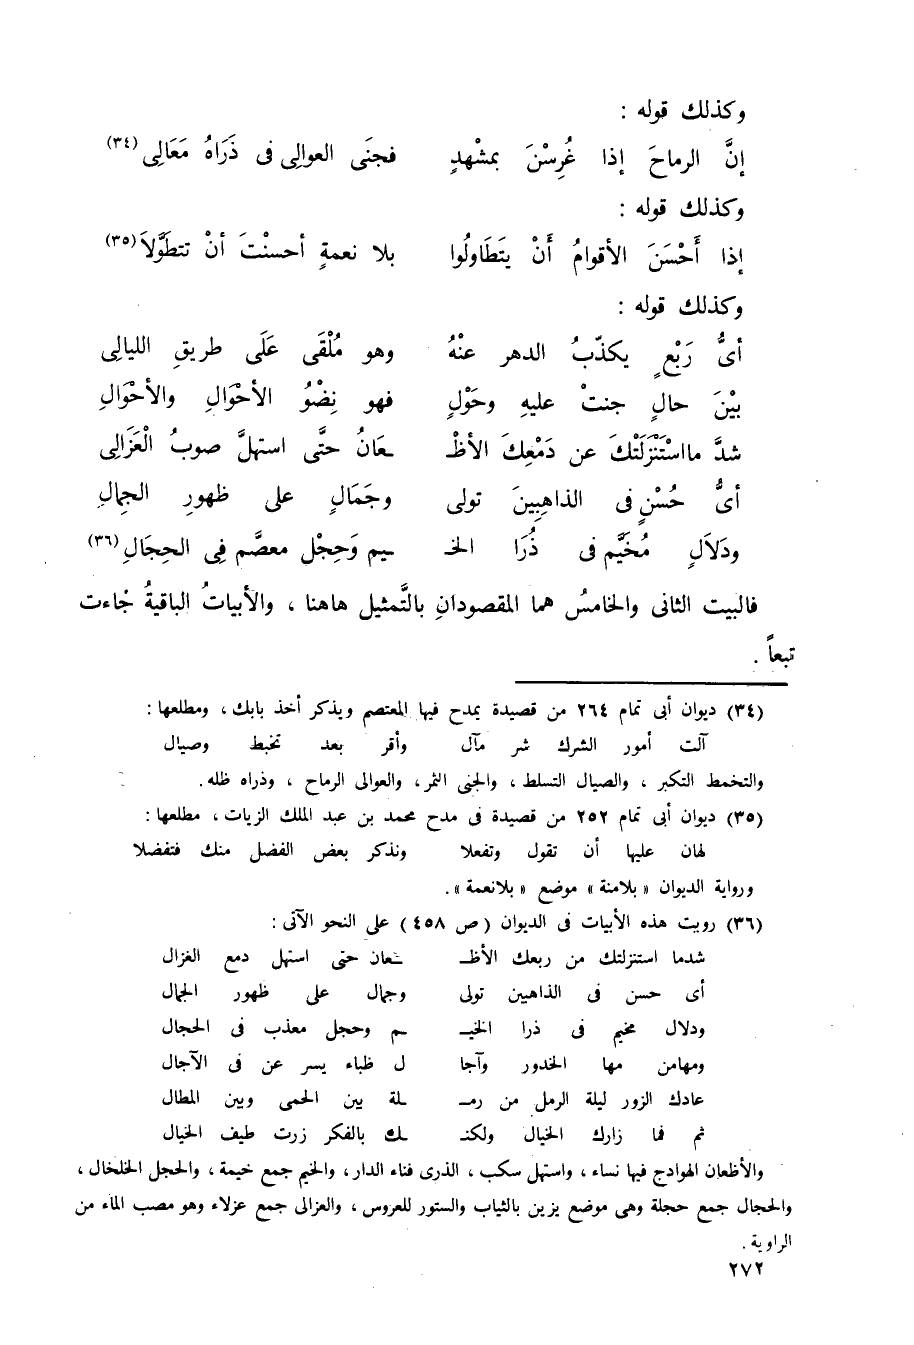 وكذلك قوله :
إنَّ الرماحَ إذا غُرِسْنَ بمشْهدٍ فجنَى العوالِى فى ذَرَاهُ مَعَالِى (٣٤)
وكذلك قوله :
إذا أَحْسَنَ الأقوامُ أَنْ يتَطَاولُوا بلا نعمةٍ أحسنْتَ أنْ تتطوَّلاَ (٣٥)
وكذلك قوله :
أىُّ رَبْعٍ يكذّبُ الدهر عنْهُ وهو مُلْقَى عَلَى طريقِ الليالِى
بيْنَ حالٍ جنتْ عليهِ وحَوْلٍ فهو نِضْوُ الأحْوَالِ والأحْوَالِ
شدَّ مااسْتَنْزَلَتْكَ عن دَمْعِكَ الأظْـ ـعَانُ حتَّى استهلَّ صوبُ الْعَزَالِى
أىُّ حُسْنٍ فى الذاهِبِينَ تولى وجَمَالٍ على ظهورِ الجِمالِ
ودَلاَلٍ مُخَيَّم فى ذُرَا الخـ ـيم وَحِجْل معصَّم فِى الحِجَالِ (٣٦)
فالبيت الثانى والخامسُ هما المقصودانِ بالتَّمثيل هاهنا ، والأبياتُ الباقيةُ جُاءت
تبعاً .
(٣٤) ديوان أبى تمام ٢٦٤ من قصيدة يمدح فيها المعتصم ويذكر أخذ بابك ، ومطلعها :
آلت أمور الشرك شر مآل وأقر بعد تخبط وصيال
والتخمط التكبر ، والصيال التسلط ، والجنى الثمر ، والعوالى الرماح ، وذراه ظله .
(٣٥) ديوان أبى تمام ٢٥٢ من قصيدة فى مدح محمد بن عبد الملك الزيات ، مطلعها :
لهان عليها أن تقول وتفعلا ونذكر بعض الفضل منك فتفضلا
ورواية الديوان « بلامنة » موضع « بلانعمة » .
(٣٦) رويت هذه الأبيات فى الديوان ( ص ٤٥٨ ) على النحو الآتى :
شدما استنزلتك من ربعك الأظـ ـعان حتى استهل دمع الغزال
أى حسن فى الذاهبين تولى وجمال على ظهور الجمال
ودلال مخيم فى ذرا الخيـ ـم وحجل معذب فى الحجال
ومهامن مها الخدور وآجا ل ظباء يسر عن فى الآجال
عادك الزور ليلة الرمل من رمـ ـلة بين الحمى وبين المطال
ثم فما زارك الخيال ولكنـ ـك بالفكر زرت طيف الخيال
والأظعان الهوادج فيها نساء ، واستهل سكب ، الذرى فناء الدار ، والخيم جمع خيمة ، والحجل الخلخال ،
والحجال جمع حجلة وهى موضع يزين بالثياب والستور للعروس ، والعزالى جمع عزلاء وهو مصب الماء من
الراوية .
٢٧٢